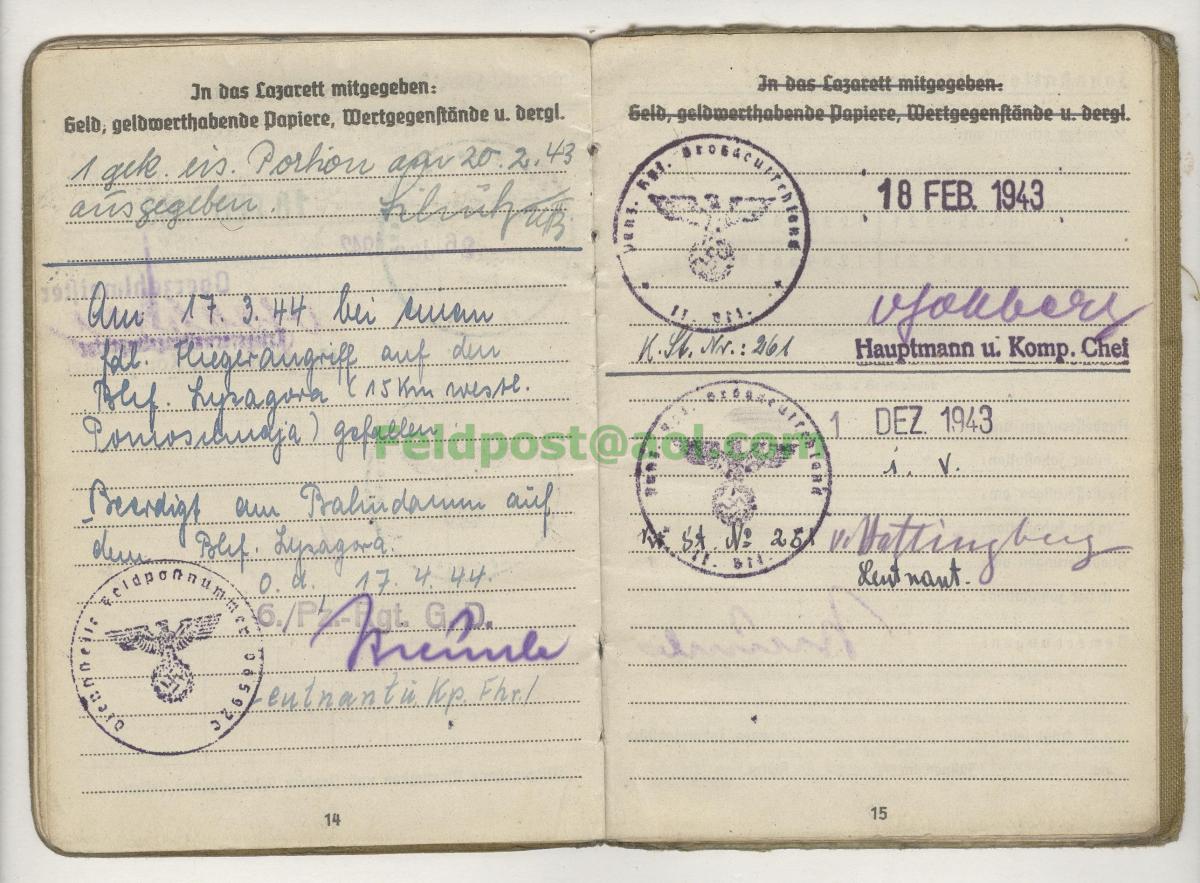 In das Lazarett mitgegeben:
Geld, geldwerthabende Papiere, Wertgegenstände u. dergl.
1 gek. eis. Portion am 20.2.43
ausgegeben.
Am 17.3.44 bei einem
fdl. Fliegerangriff auf den
Bhf. Lysagora (15 km westl.
Pomosnaja) gefallen
Beerdigt am Bahndamm auf
dem Bhf. Lysagora.
O.U. 17.4.44.
6./Pz.-Rgt. G.D.
Leutnant u. Kp. Fhr.
Dienststelle Feldpostnummer 06592C
14
In das Lazarett mitgegeben:
Geld, geldwerthabende Papiere, Wertgegenstände u. dergl.
Panz. Rgt. Großdeutschland
18 FEB. 1943
K. St. Nr.: 261
Hauptmann u. Komp. Chef
Feldpost@aol.com
Panz. Rgt. Großdeutschland
1 DEZ. 1943
i. V.
St. No
Leutnant.
15